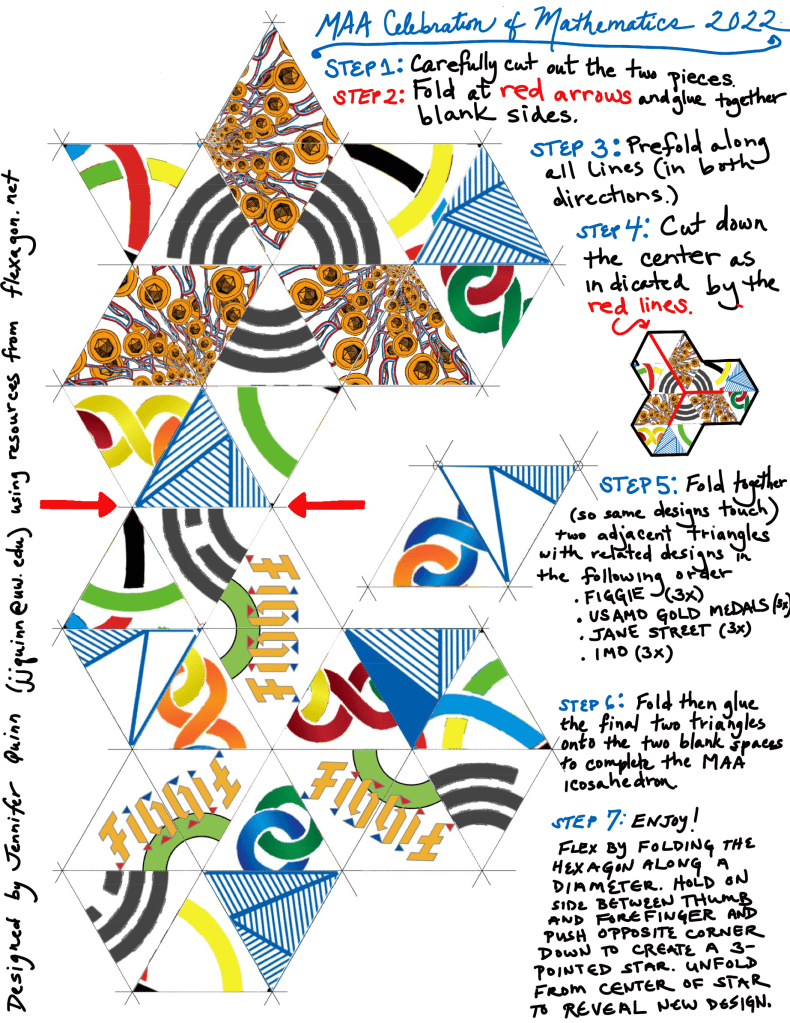 MAA Celebration of Mathematics 2022
STEP 1: Carefully cut out the two pieces.
STEP 2: Fold at red arrows and glue together
blank sides.
STEP 3: Prefold along
all lines (in both
directions.)
STEP 4: Cut down
the center as
indicated by the
red lines.
STEP 5: Fold together
(so same designs touch)
two adjacent triangles
with related designs in
the following order
• FIGGIE (3x)
• USAMO GOLD MEDALS (3x)
• JANE STREET (3x)
• IMO (3x)
STEP 6: Fold then glue
the final two triangles
onto the two blank spaces
to complete the MAA
icosahedron
STEP 7: ENJOY!
FLEX BY FOLDING THE
HEXAGON ALONG A
DIAMETER. HOLD ON
SIDE BETWEEN THUMB
AND FOREFINGER AND
PUSH OPPOSITE CORNER
DOWN TO CREATE A 3-
POINTED STAR. UNFOLD
FROM CENTER OF STAR
TO REVEAL NEW DESIGN.
Designed by Jennifer Quinn (jjquinn@uw.edu) using resources from flexagon.net
FIGGIE
FIGGIE
FIGGIE